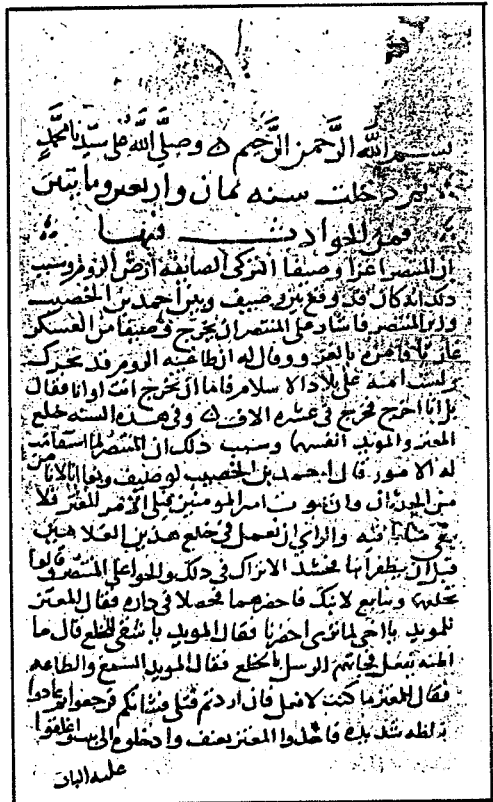 بسم الله الرحمن الرحيم وصلى الله على سيدنا محمد
ثم دخلت سنة ثمان واربعين ومايتين
فمن الحوادث فيها
ان المنتصر اغزا وصيفا التركى الصائفة ارض الروم وسبب
ذلك انه كان قد وقع بين وصيف وبين احمد بن الخصيب
وزير المنتصر فاشار على المنتصر ان يخرج وصيفا من العسكر
غازيا فامره بالغزو وقال له ان طاغية الروم قد تحرك
ولست امنه على بلاد الاسلام فاما ان تخرج انت او انا فقال
بل انا اخرج فخرج في عشرة الاف وفي هذه السنه خلع
المعتز والمويد انفسهما وسبب ذلك ان المنتصر لما استقامت
له الامور قال احمد بن الخصيب لوصيف وبغا انا لا نامن
من الحدثان وان يموت امير المومنين فيلى الامر المعتز فلا
يبقى منا باقيه والراي ان نعمل في خلع هذين الغلامين
قبل ان يظفرا بنا فجد الاتراك في ذلك والحوا على المنتصر وقالوا
نخلعهما ونبايع لابنك فاحضرهما فجعلا في داره فقال المعتز
للمويد يا اخى لم ترى احضرنا فقال المويد يا شقى للخلع قال ما
اظنه يفعل فجاتهم الرسل بالخلع فقال المويد السمع والطاعه
فقال المعتز ما كنت لافعل فان اردتم قتلى فشانكم فرجعوا ثم عادوا
بغلظه شديده فاخذوا المعتز بعنف وادخلوه الى بيت واغلقوا
عليه الباب